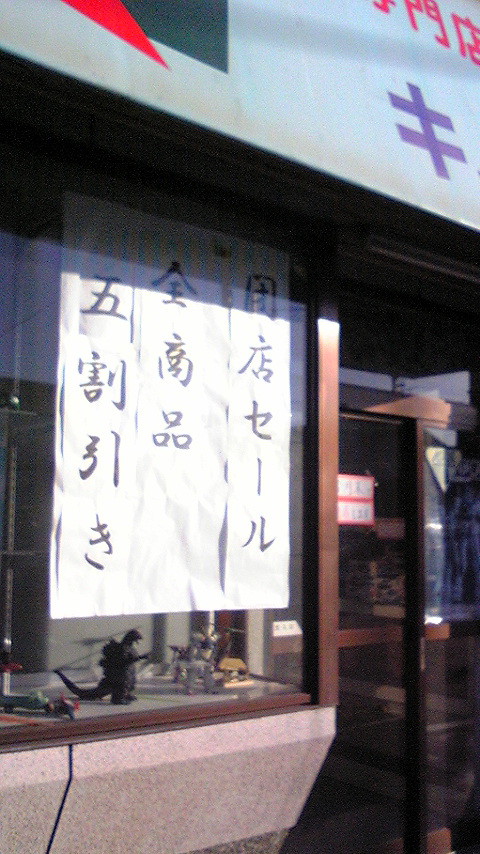 専門店
キ
閉店セール
全商品
五割引き